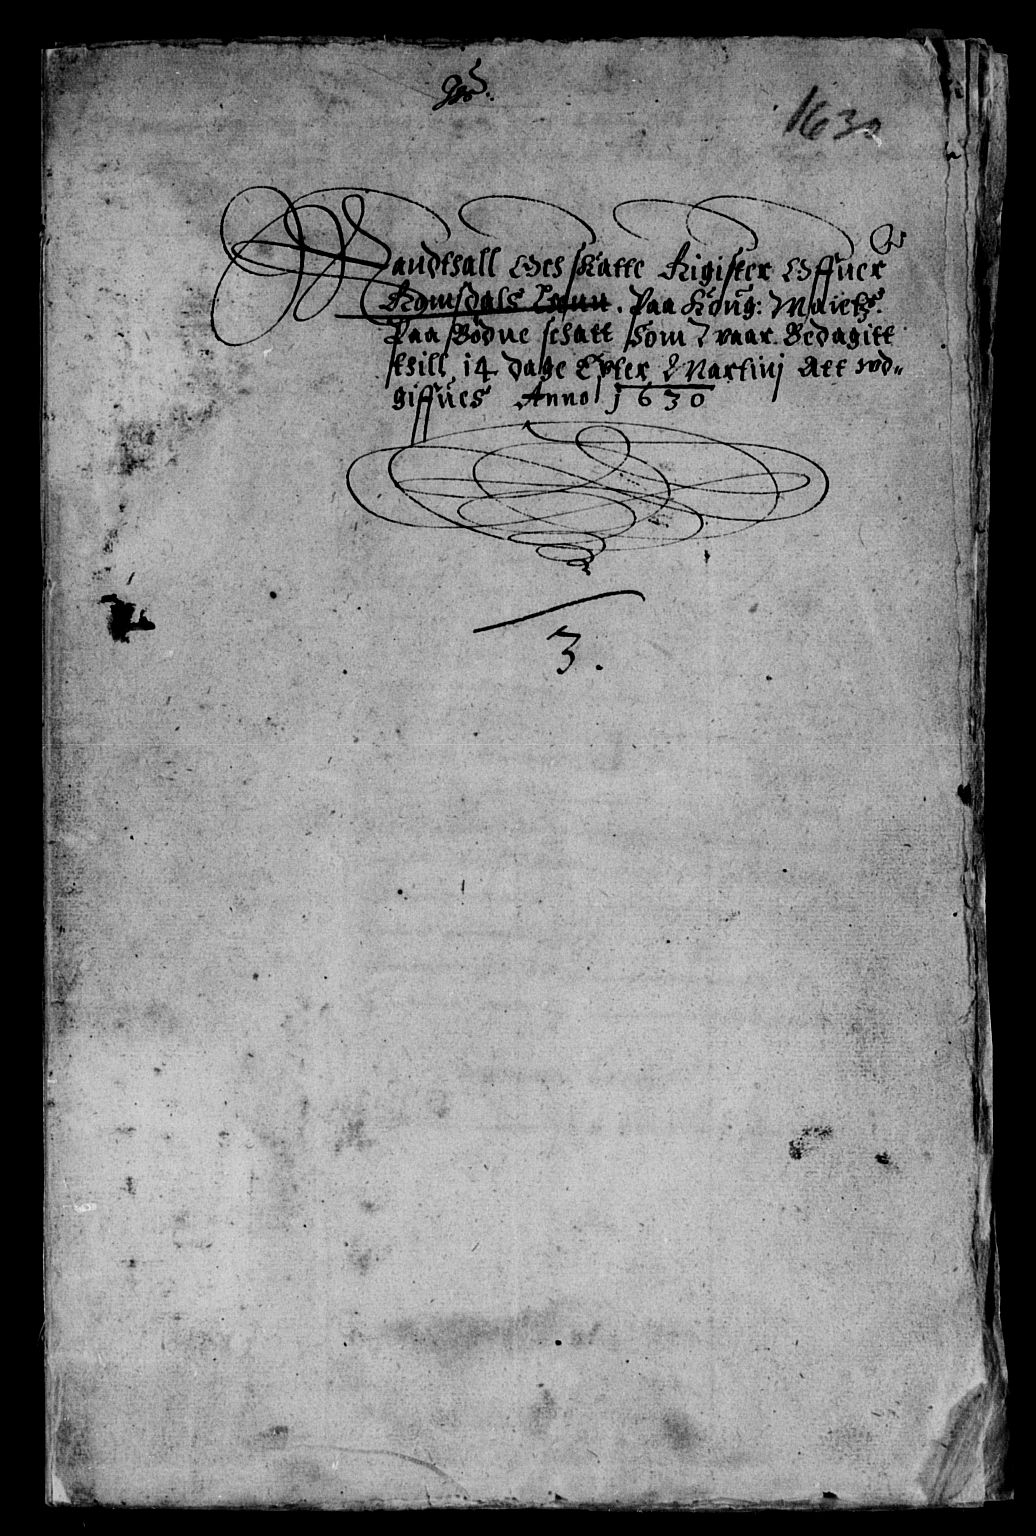 1630
Mandtall Och Skatte Rigister Offuer
Romsdals Lenn. Paa Kong: Maietz.
Paa Bodne schatt som vaar. Bedagitt
thill 14 dage Epter Martinj Att wd-
giffues Anno 1630
3.